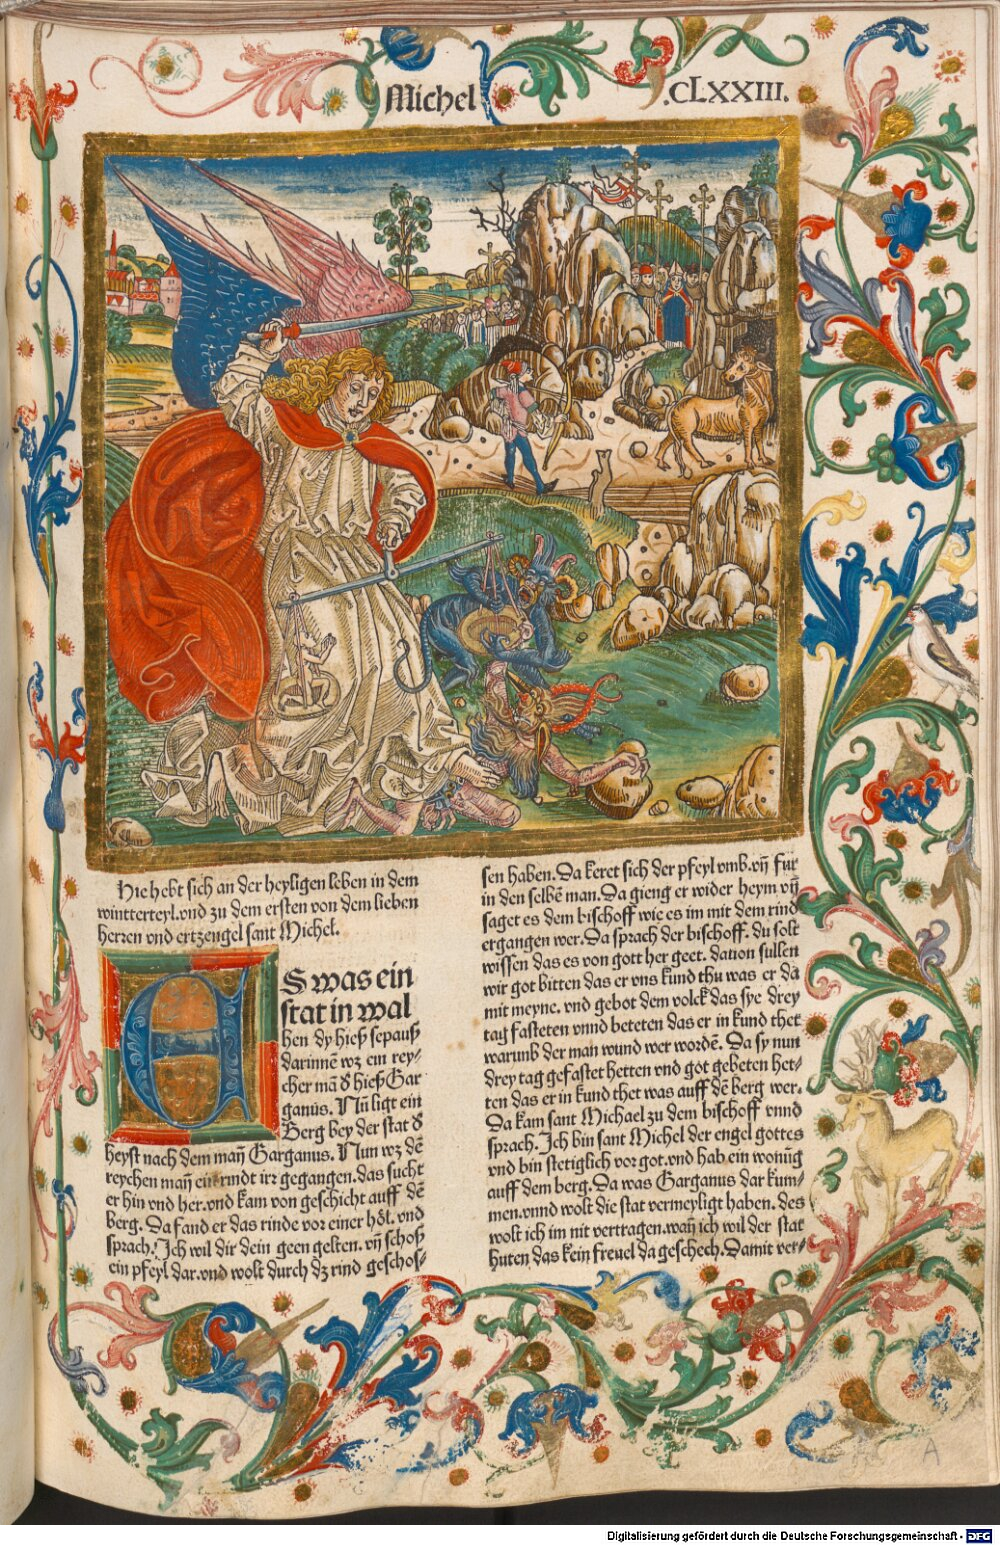 Michel
.CLXXIII.
Hie hebt sich an der heyligen leben in dem
wintterteyl.vnd zu dem ersten von dem lieben
herren vnd ertzengel sant Michel.
ES was ein
stat in wal
hen dy hieß sepauß
darinnē wz ein rey⸗
cher mā d̕ hieß Gar
ganus. Nūn ligt ein
Berg bey der stat d̕
heyst nach dem mañ Garganus. Nun wz dē
reychen mañ ein rindt irr gegangen.das sucht
er hin vnd her.vnd kam von geschicht auff dē
berg. Da fand er das rinde vor einer höl. vnd
sprach. Ich wil dir dein geen gelten. vñ schoß
ein pfeyl dar.vnd wolt durch dz rind geschos⸗
sen haben. Da keret sich der pfeyl vmb.vñ fur
in den selbē man. Da gieng er wider heym vñ
saget es dem bischoff wie es im mit dem rind
ergangen wer. Da sprach der bischoff. du solt
wissen das es von gott her geet. dauon süllen
wir got bitten das er vns kund thu was er da
mit meyne. vnd gebot dem volck das sye drey
tag fasteten vnnd beteten das er in kund thet
warumb der man wund wer wordē. Da sy nun
drey tag gefastet hetten vnd got gebeten het⸗
ten das er in kund thet was auff dē berg wer.
Da kam sant Michael zu dem bischoff vnnd
sprach. Ich bin sant Michel der engel gottes
vnd bin stetiglich vor got.vnd hab ein wonūg
auff dem berg. Da was Garganus dar kum⸗
men.vnnd wolt die stat vermeyligt haben. des
wolt ich im nit vertragen.wañ ich wil der stat
huten das kein freuel da geschech. Damit ver⸗
A
Digitalisierung gefördert durch die Deutsche Forschungsgemeinschaft - DFG